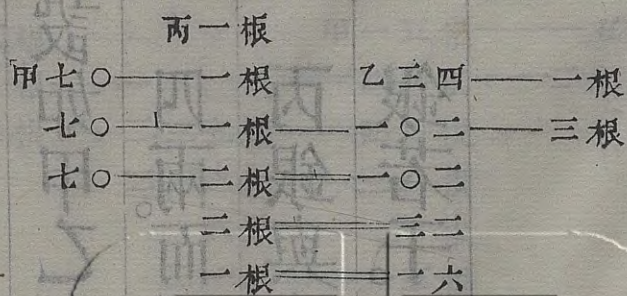 丙一根
甲七〇——一根 乙三四——一根
七〇——一根——一〇二——三根
七〇——二根══一〇二
二根══三二
一根══一六